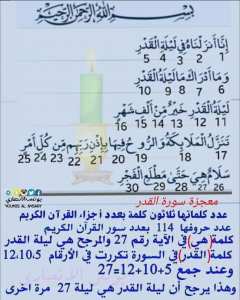 بسم الله الرحمن الرحيم
إِنَّا أَنزَلْنَاهُ فِي لَيْلَةِ الْقَدْرِ
5 4 3 2 1
وَمَا أَدْرَاكَ مَا لَيْلَةُ الْقَدْرِ
10 9 8 7 6
لَيْلَةُ الْقَدْرِ خَيْرٌ مِّنْ أَلْفِ شَهْرٍ
16 15 14 13 12 11
تَنَزَّلُ الْمَلَائِكَةُ وَالرُّوحُ فِيهَا بِإِذْنِ رَبِّهِم مِّن كُلِّ أَمْرٍ
25 24 23 22 21 20 19 18 17
سَلَامٌ هِيَ حَتَّى مَطْلَعِ الْفَجْرِ
30 29 28 27 26
YOUNUS AL ANSARY
معجزة سورة القدر
عدد كلماتها ثلاثون كلمة بعدد أجزاء القرآن الكريم
عدد حروفها 114 بعدد سور القرآن الكريم
كلمة (هي) في الآية رقم 27 والمرجح هي ليلة القدر
كلمة (القدر) في السورة تكررت في الأرقام 12،10،5
وعند جمع 5+10+12=27
وهذا يرجح أن ليلة القدر هي ليلة 27 مرة اخرى